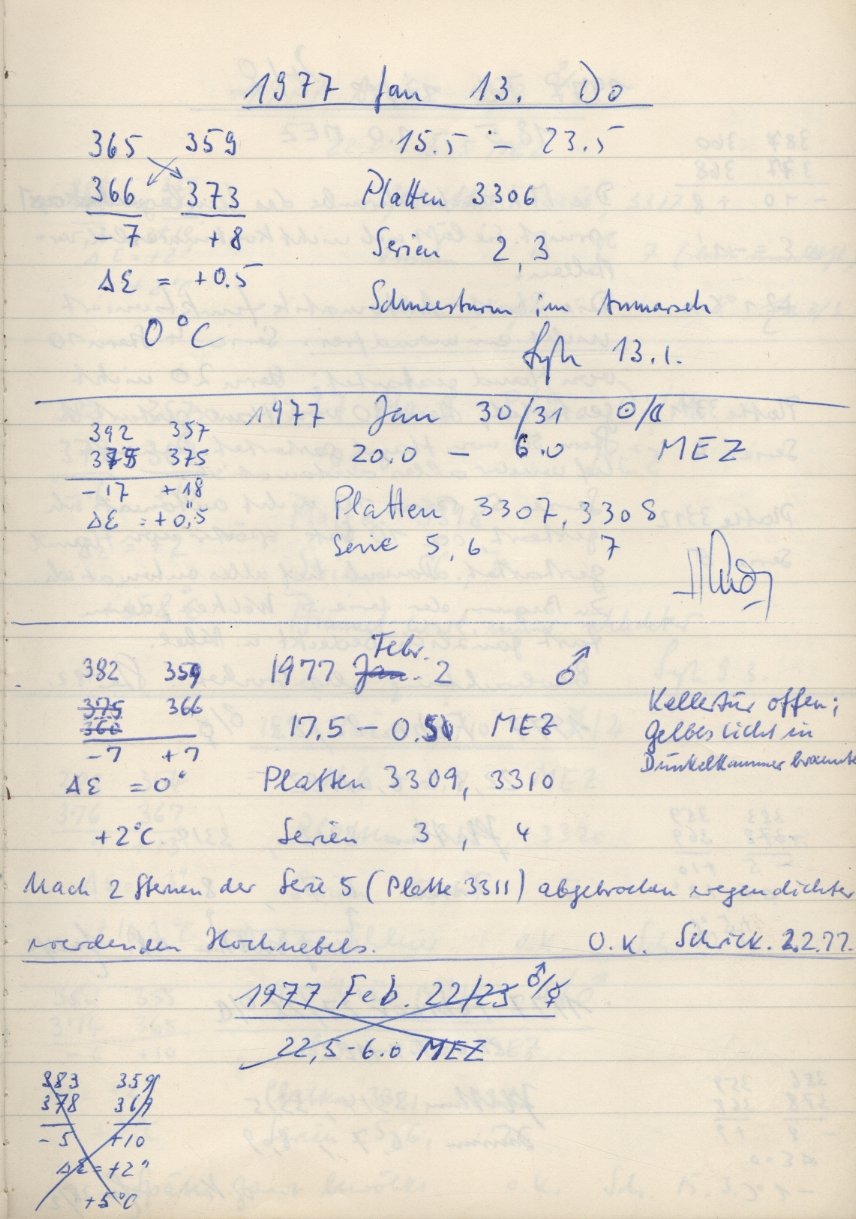 1977 Jan 13. Do
365 359 15.5 - 23.5
366 373 Platten 3306
-7 +8 Serien 2,3
ΔE = +0.5
Schneesturm im Anmarsch
0°C
13.1.
1977 Jan 30/31 ☉/☾
392 357
375 375 20.0 - 6.0 MEZ
-17 +18
ΔE = +0,"5 Platten 3307, 3308
Serie 5,6 7
Febr.
382 359 1977 Jan. 2 ♂
375 366
360 17.5 - 0.5 MEZ
-7 +7
Kellertür offen;
gelbes Licht in
Dunkelkammer brannte
ΔE = 0" Platten 3309, 3310
+2°C Serien 3, 4
Nach 2 Sternen der Serie 5 (Platte 3311) abgebrochen wegen dichter
werdenden Hochnebels. O.K. Schrick. 2.2.77.
1977 Feb. 22/23 ♂/☿
22,5-6.0 MEZ
383 359
378 369
-5 +10
ΔE = +2"
+5°C